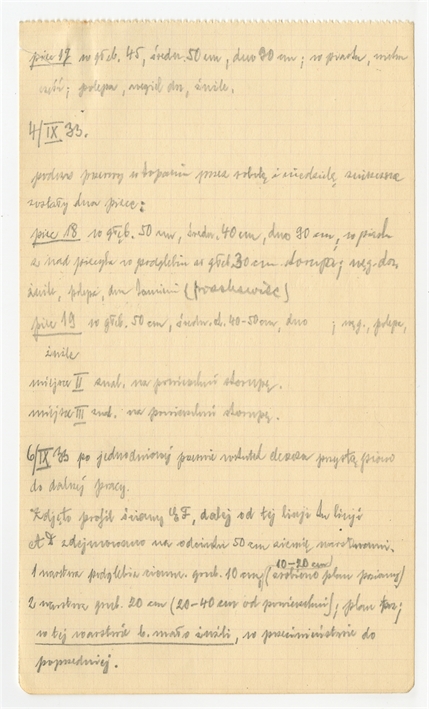 piec 17 w głęb. 45, średn. 50 cm, dno 30 cm; w piasku,
część; polepa, węgiel drz., żużle.
4/IX 33.
podczas przerwy w kopaniu przez sobotę i niedzielę zniszczone
zostały dwa piece:
piec 18 w głęb. 50 cm, średn. 40 cm, dno 30 cm, w piasku
a nad piecykiem w podglebiu w głęb. 30 cm skorupy; węg. drz.,
żużle, polepa, dwa kamienie
piec 19 w głęb. 50 cm, średn. ok. 40-50 cm, dno ; węg., polepa,
żużle
miejsce II znal. na powierzchni skorupę.
miejsce III znal. na powierzchni skorupę.
6/IX 33 po jednodniowej przerwie wskutek deszczu
do dalszej pracy.
Zdjęto profil ściany EF, dalej od tej linji do linji
AD zdejmowano na odcinku 50 cm ziemię warstwami.
1 warstwa podglebia ciemn. grub. 10 cm, 10-20 cm (zrobiono plan poziomy)
2 warstwa grub. 20 cm (20-40 cm od powierzchni); plan
w tej warstwie b. mało żużli, w przeciwieństwie do
poprzedniej.